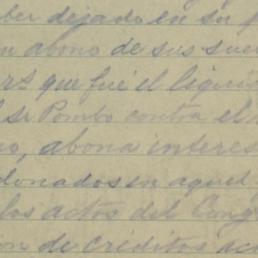 ber dejado en su p
n abono de sus suel
rs. que fué el liqui
l sr Pombo contra el
o, abona interes
donados en aquel
los actos del Cong
ón de créditos ac